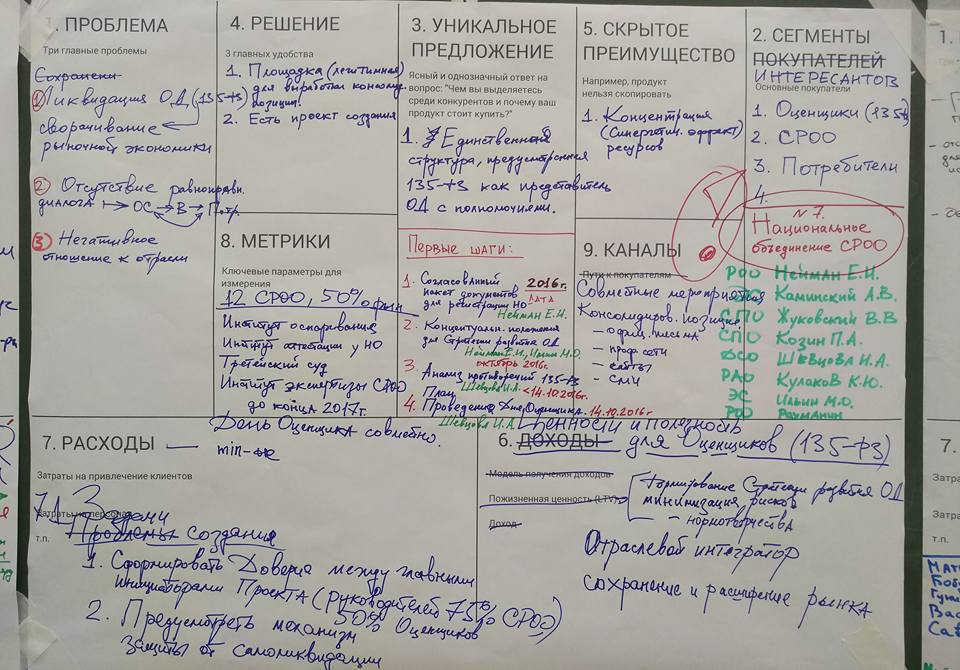 1. ПРОБЛЕМА
Три главные проблемы
Сохранени
1 Ликвидация ОД (135-ФЗ)
сворачивание
рыночной экономики
2 Отсутствие равноправн.
диалога ОС В Потр.
3 Негативное
отношение к отрасли
4. РЕШЕНИЕ
3 главных удобства
1. Площадка (легитимная)
для выработки консолид.
позиции.
2. Есть проект создания
3. УНИКАЛЬНОЕ
ПРЕДЛОЖЕНИЕ
Ясный и однозначный ответ на
вопрос: "Чем вы выделяетесь
среди конкурентов и почему ваш
продукт стоит купить?"
1. Единственная
структура, предусмотренная
135-ФЗ как представитель
ОД с полномочиями.
5. СКРЫТОЕ
ПРЕИМУЩЕСТВО
Например, продукт
нельзя скопировать
1. Концентрация
(Синергетич. эффект)
ресурсов
2. СЕГМЕНТЫ
ПОКУПАТЕЛЕЙ
ИНТЕРЕСАНТОВ
Основные покупатели
1. Оценщики (135)
2. СРОО
3. Потребители
4.
N 7.
Национальное
объединение СРОО
РОО Нейман Е.И.
Каминский А.В.
СПО Жуковский В.В
СПО Козин П.А.
ДСО Шевцова И.А.
РАО Кулаков К.Ю.
ЭС Ильин М.О.
РОО Рахманин
8. МЕТРИКИ
Ключевые параметры для
измерения
12 СРОО, 50% физл
Институт оспаривания
Институт аттестации у НО
Третейский суд
Институт экспертизы СРОО
до конца 2017г.
Первые шаги:
1. Согласованный 2016г.
пакет документов дата
для регистрации НО
Нейман Е.И.
2. Концептуальн. положения
для Стратегии развития ОД
Нейман Е.И., Ильин М.О.
октябрь 2016г.
3. Анализ противоречий 135-ФЗ
План Шевцова И.А. <14.10.2016г
4. Проведение Дня Оценщика. 14.10.2016г
Шевцова И.А.
9. КАНАЛЫ
Пути к покупателям
Совместные мероприятия
Консолидиров. позиция
– офиц. письма
– проф. сети
– сайты
– СМИ
7. РАСХОДЫ — День Оценщика совместно.
min-ое
Затраты на привлечение клиентов
Затраты на персонал
т.п.
7.1 Задачи
Проблемы создания
1. Сформировать Доверие между главными
инициаторами Проекта (Руководителей 75% СРОО)
50% Оценщиков
2. Предусмотреть механизм
защиты от самоликвидации
Ценности и Полезность
6. ДОХОДЫ для Оценщиков (135-ФЗ)
Модель получения доходов
Пожизненная ценность (LTV)
Доход
Формирование Стратегии развития ОД
минимизация рисков
– нормотворчества
Отраслевой интегратор
сохранение и расширение рынка
7.
Затра
т.п.